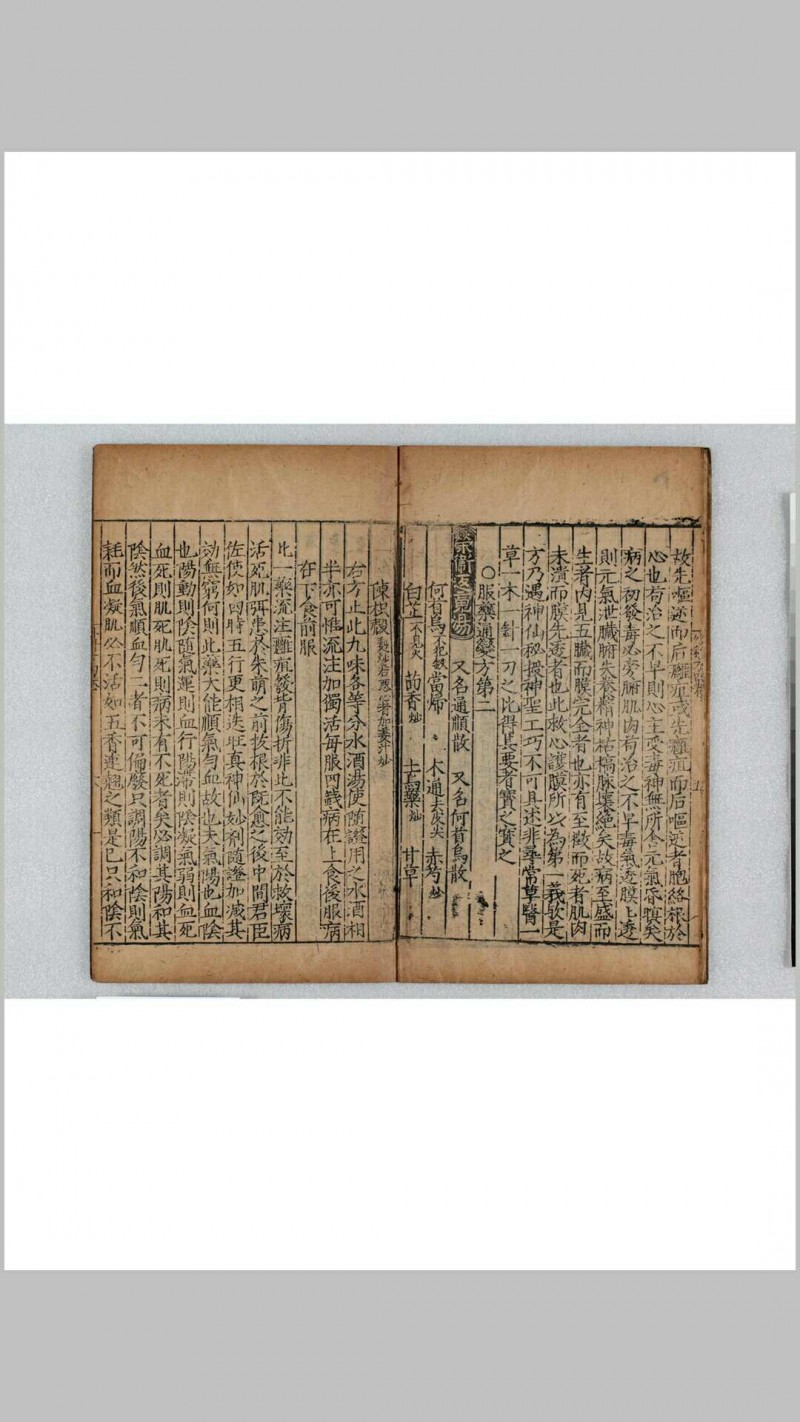 故先嘔逆而后癰疽或先癰疽而后嘔逆者胞絡根於
心也有治之不早則心主受毒神無所舍元氣昏瞶矣
病之初發毒必旁腑肌肉有治之不早毒氣透膜上透
則元氣泄臟腑失養精神枯槁脉壞絶矣故病至盛而
生者内見五臟而膜完全者也亦有至微而死者肌肉
未潰而膜先透者也此救心護膜所以為第一義欤是
方乃遇神仙秘授神聖工巧不可具述非尋常草醫一
草一木一針一刀之比得其要者寳之寳之
○服藥通變方第二
榮衛返魂湯 又名通順散 又名何首烏散
何首烏不犯鐵 當㱕 木通去皮尖 赤芍炒
白芷不見火 茴香炒 土烏藥炒 甘草
陳枳殼麩炒若惡心者加姜汁炒
右方止此九味各等分水酒湯使随證用之水酒相
半亦可惟流注加獨活每服四錢病在上食後服病
在下食前服
此一藥流注癰疽發背傷折非此不能効至於救壞病
活死肌弭患扵未萌之前拔根於既愈之後中間君臣
佐使如四時五行更相迭旺真神仙妙劑随證加减其
効無窮何則此藥大能順氣匀血故也夫氣陽也血陰
也陽動則陰随氣運則血行陽滯則陰凝氣弱則血死
血死則肌死肌死則病未有不死者矣必調其陽和其
陰然後氣順血匀二者不可偏廢只調陽不和陰則氣
耗而血凝肌必不活如五香連翹之類是已只和陰不